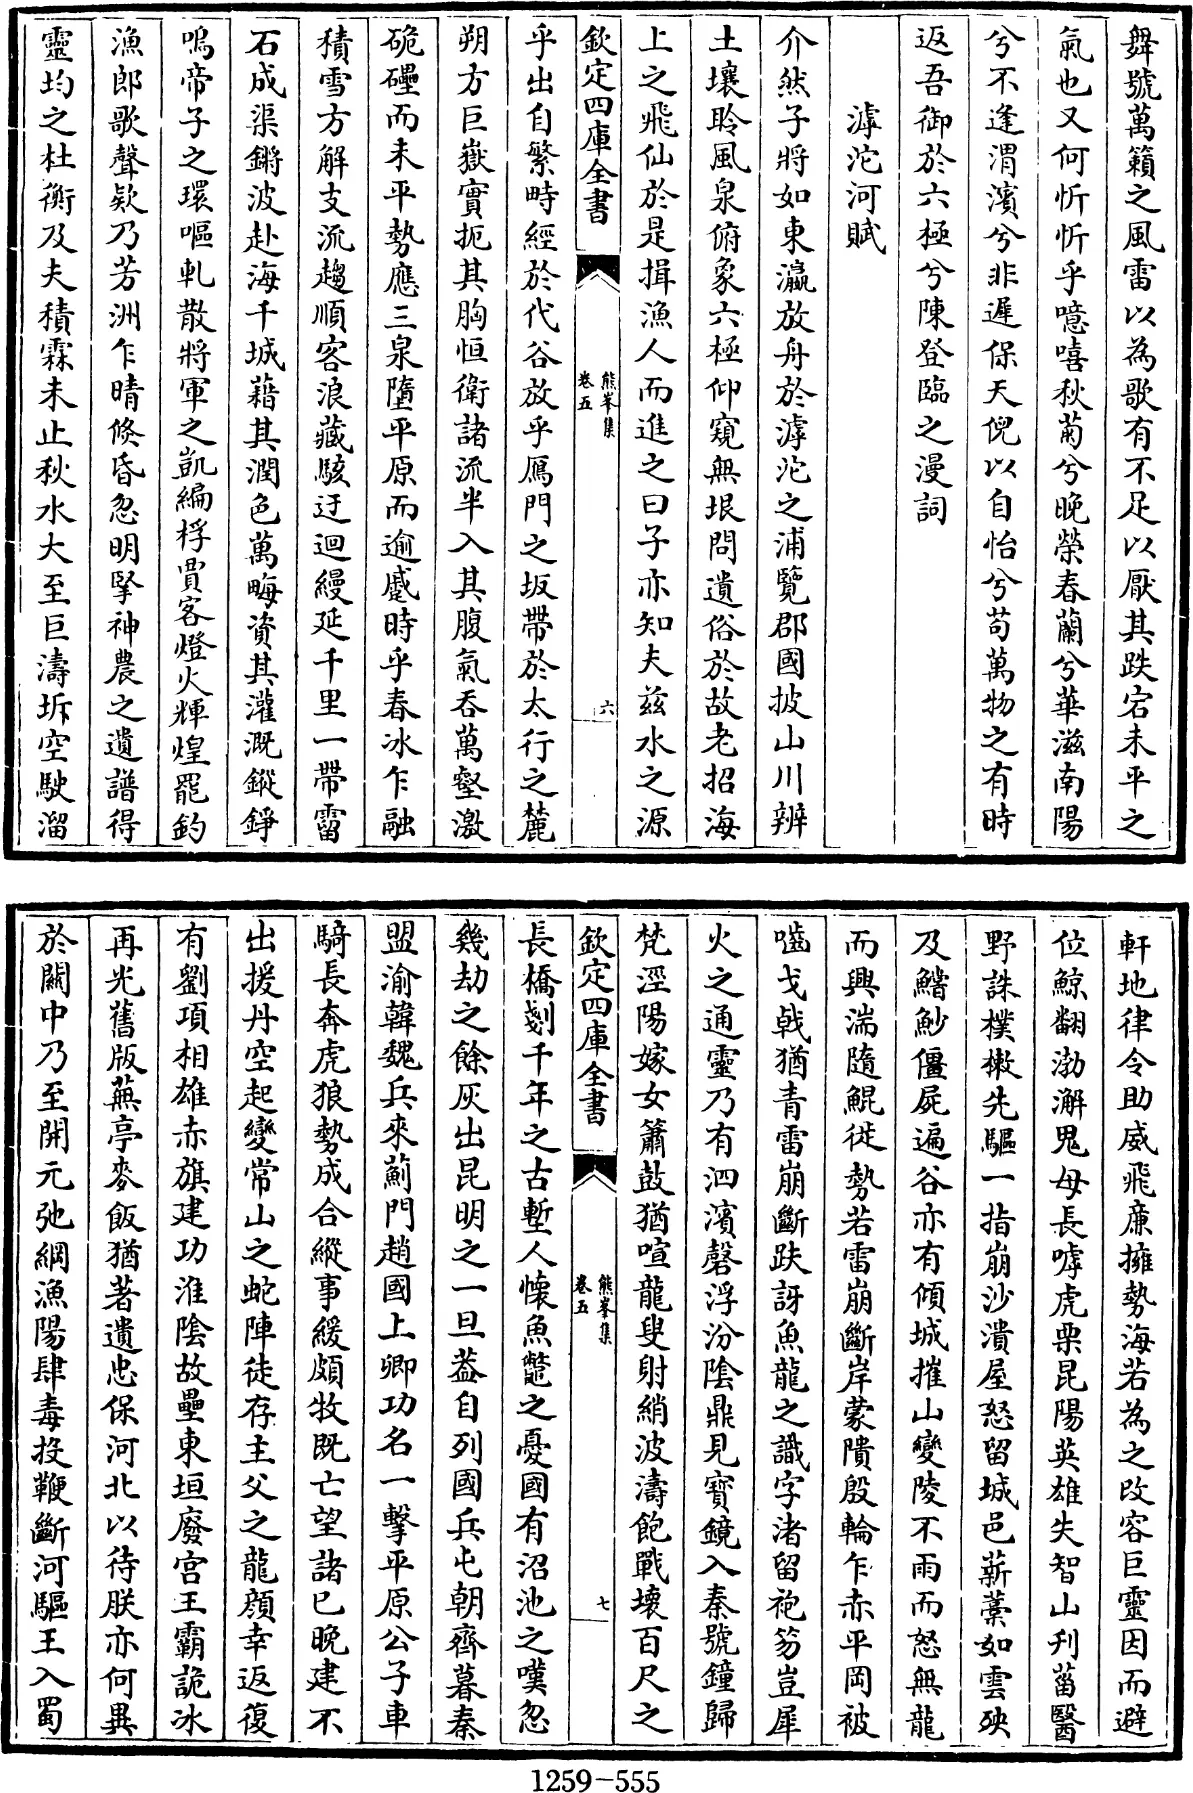 舞號萬籟之風雷以為歌有不足以厭其跌宕未平之
氣也又何忻忻乎噫嘻秋菊兮晚榮春蘭兮華滋南陽
兮不逢渭濱兮非遲保天倪以自怡兮茍萬物之有時
返吾御於六極兮陳登臨之漫詞
滹沱河賦
介然子將如東瀛放舟於滹沱之浦覽郡國披山川辨
土壤聆風泉俯象六極仰窺無垠問遺俗於故老招海
上之飛仙於是揖漁人而進之曰子亦知夫茲水之源
欽定四庫全書
熊峯集
卷五
六
乎出自繁畤經於代谷放乎鴈門之坂帶於太行之麓
朔方巨嶽實扼其胸恒衛諸流半入其腹氣吞萬壑激
硊礧而未平勢應三泉墮平原而逾蹙時乎春冰乍融
積雪方解支流趨順客浪藏駭迂迴縵延千里一帶霤
石成渠鏘波赴海千城藉其潤色萬畮資其灌溉鏦錚
嗚帝子之環嘔軋散將軍之凱編桴賈客燈火輝煌罷釣
漁郎歌聲欵乃芳洲乍晴倏昏忽明擥神農之遺譜得
靈均之杜衡及夫積霖未止秋水大至巨濤坼空駛溜
軒地律令助威飛廉擁勢海若為之改容巨靈因而避
位鯨翻渤澥鬼母長嘑虎栗昆陽英雄失智山刋菑翳
野誅樸樕先驅一指崩沙潰屋怒留城邑薪藁如雲殃
及鰌魦僵屍遍谷亦有傾城摧山變陵不雨而怒無龍
而興湍隨鯤徙勢若雷崩斷岸蒙隤殷輪乍赤平岡被
囓戈戟猶青雷崩斷趺訝魚龍之識字渚留袍笏豈犀
火之通靈乃有泗濱磬浮汾陰鼎見寳鏡入秦號鐘歸
梵涇陽嫁女簫鼓猶喧龍叟射綃波濤飽戰壞百尺之
欽定四庫全書
熊峯集
卷五
七
長橋剗千年之古塹人懷魚鼈之憂國有沼池之嘆忽
幾劫之餘灰出昆明之一旦葢自列國兵屯朝齊暮秦
盟渝韓魏兵來薊門趙國上卿功名一擊平原公子車
騎長奔虎狼勢成合縱事緩頗牧既亡望諸已晚建不
出援丹空起變常山之蛇陣徒存主父之龍顔幸返復
有劉項相雄赤旗建功淮陰故壘東垣廢宫王霸詭冰
再光舊版蕪亭麥飯猶著遺忠保河北以待朕亦何異
於關中乃至開元弛綱漁陽肆毒投鞭斷河驅王入蜀
1259-555